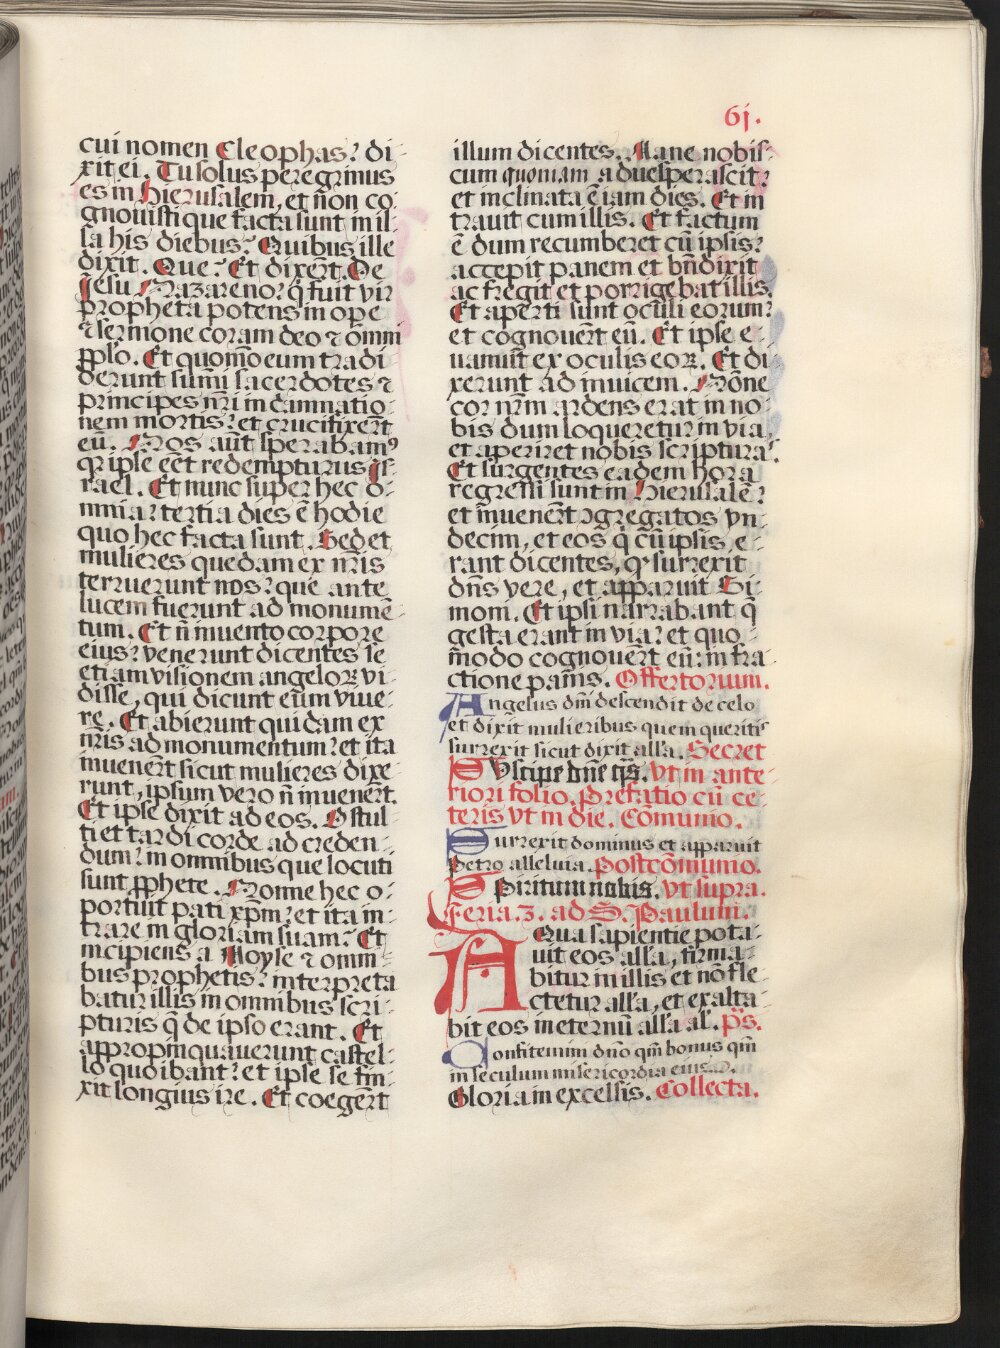 6j.
cui nomen Cleophas? di-
xit ei. Tu solus peregrinus
es in Hierusalem, et nõn co-
gnouisti que facta sunt in il-
la his diebus? Quibus ille
dixit. Que? Et dixerũt. De
Iesu Nazareno? q̃ fuit vir
propheta potens in ope
⁊ sermone coram deo ⁊ omni
pplo. Et quomõ eum tradi-
derunt sum̃i sacerdotes ⁊
principes nr̃i in damnatio-
nem mortis? et crucifixerũt
eũ. Nos aũt sperabamꝰ
qꝛ ipse eẽt redempturus is-
rael. Et nunc super hec o-
mnia? tertia dies ẽ hodie
quo hec facta sunt. Sed et
mulieres quedam ex nr̃is
terruerunt nos? que ante
lucem fuerunt ad monumẽ-
tum. Et ñ inuento corpore
eius? venerunt dicentes se
etiam visionem angeloꝝ vi-
disse, qui dicunt eũm viue-
re. Et abierunt quidam ex
nr̃is ad monumentum? et ita
inuenerũt sicut mulieres dixe-
runt, ipsum vero ñ inuenerũt.
Et ipse dixit ad eos. O stul-
ti et tardi corde ad creden-
dum? in omnibus que locuti
sunt pphete. Nonne hec o-
portuit pati xp̃m? et ita in-
trare in gloriam suam? Et
incipiens a Moyse ⁊ omni-
bus prophetis? interpreta-
batur illis in omnibus scri-
pturis q̃ de ipso erant. Et
appropinquauerunt castel-
lo quo ibant? et ipse se fin-
xit longius ire. Et coegerũt
illum dicentes. Mane nobis-
cum quoniam aduesperascit?
et inclinata ẽ iam dies. Et in-
trauit cum illis. Et factum
ẽ dum recumberet cũ ipsis?
accepit panem et bñdixit
ac fregit et porrigebat illis.
Et aperti sunt oculi eorum?
et cognouerũt eũ. Et ipse e-
uanuit ex oculis eoꝝ. Et di-
xerunt ad inuicem. Nõne
cor nr̃m ardens erat in no-
bis dum loqueretur in via,
et aperiret nobis scripturas?
Et surgentes eadem hora
regressi sunt in Hierusalẽ?
et inuenerũt ꝯgregatos vn-
decim, et eos q̃ cũ ipsis, e-
rant dicentes, ꝙ surrexit
dñs vere, et apparuit Si-
moni. Et ipsi narrabant q̃
gesta erant in via? et quo-
modo cognouerũt eũ in fra-
ctione panis. Offertorium.
Angelus dñi descendit de celo
et dixit mulieribus quem queritis
surrexit sicut dixit alla. Secret
SUscipe dñe q̃s. vt in ante-
riori folio. Prefatio cũ ce-
teris vt in die. Cõmunio.
Surrexit dominus et apparuit
Petro alleluia. Postcõmunio.
SPiritum nobis. vt supra.
Feria.3. ad S. Paulum.
AQua sapientie pota-
uit eos alla, firma-
bitur in illis et nõ fle-
ctetur alla, et exalta-
bit eos in eternũ alla al. p̃s.
Confitemini dño qm̃ bonus qm̃
in seculum misericordia eius.
Gloria in excelsis. Collecta.